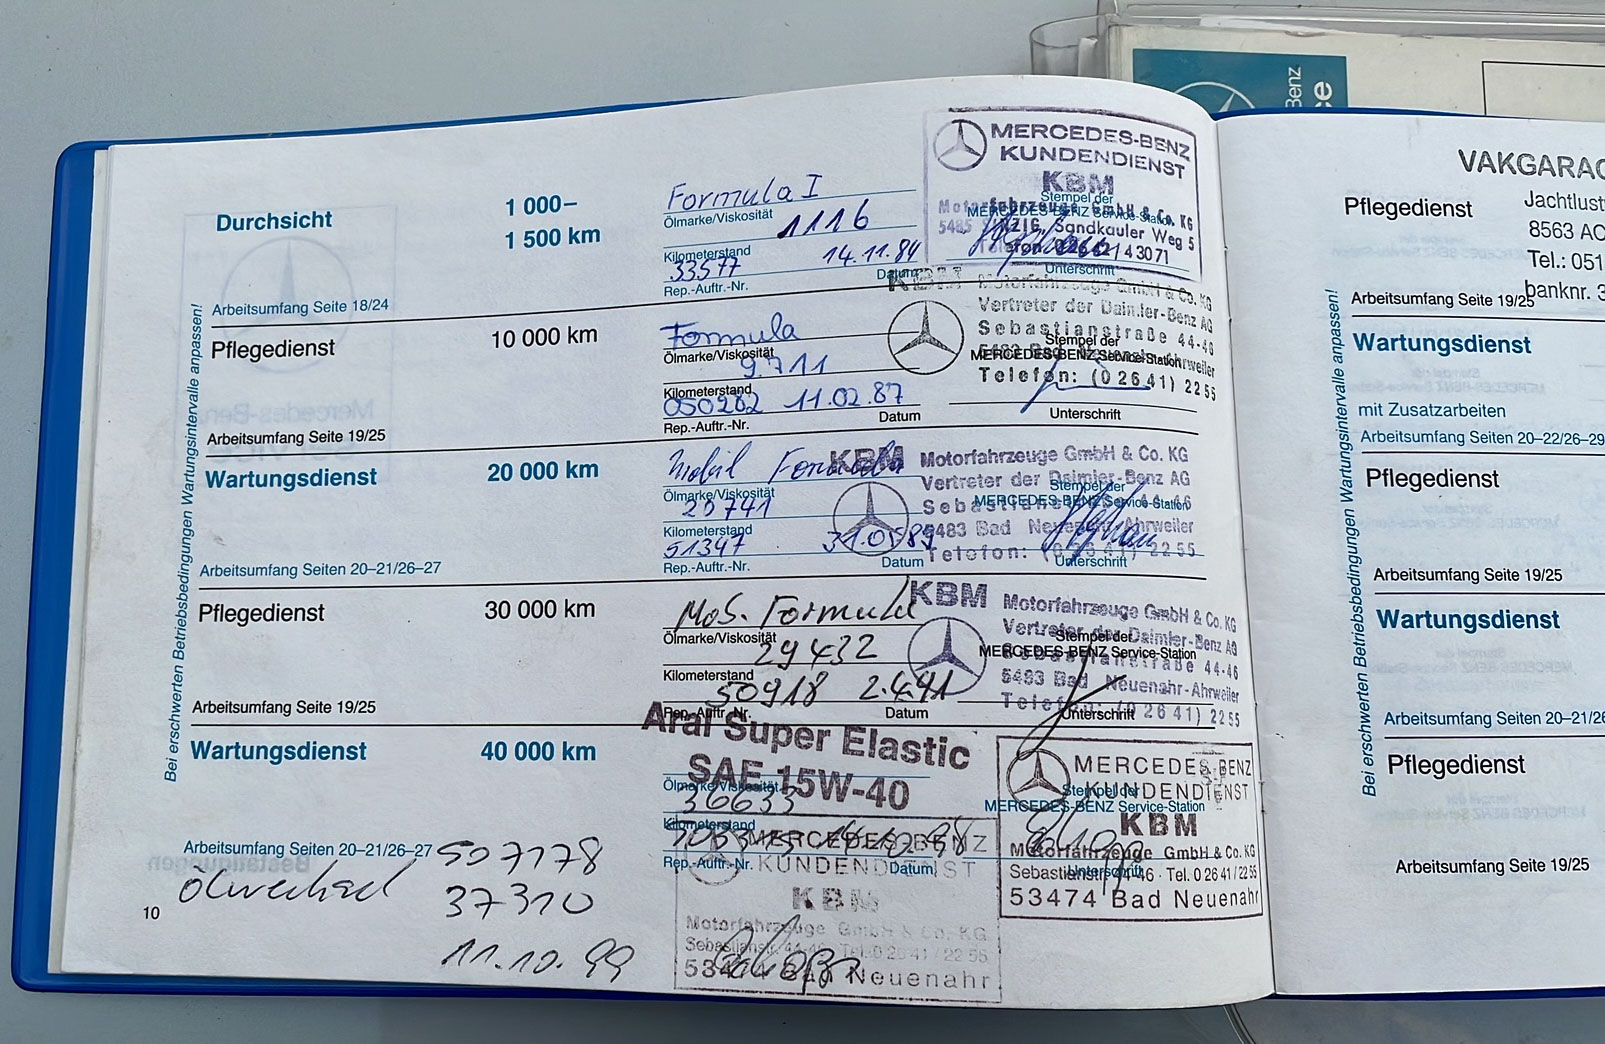 Durchsicht
1 000–
1 500 km
Formula I
Ölmarke/Viskosität
1116
Kilometerstand
33577
14.11.84
Datum
Rep.-Auftr.-Nr.
Arbeitsumfang Seite 18/24
MERCEDES-BENZ
KUNDENDIENST
KBM
Stempel der
Motorfahrzeuge GmbH & Co. KG
MERCEDES-BENZ Service-Station
Sandkauler Weg 5
Telefon: 43071
Unterschrift
Pflegedienst
10 000 km
Formula
Ölmarke/Viskosität
9711
Kilometerstand
050282 11.02.87
Rep.-Auftr.-Nr.
Datum
Arbeitsumfang Seite 19/25
Motorfahrzeuge GmbH & Co. KG
Vertreter der Daimler-Benz AG
Sebastianstraße 44-46
Stempel der
MERCEDES-BENZ Service-Station
Telefon: (0 26 41) 22 55
Unterschrift
Wartungsdienst
20 000 km
Mobil Formula
Ölmarke/Viskosität
Kilometerstand
51347
Rep.-Auftr.-Nr.
Datum
Arbeitsumfang Seiten 20–21/26–27
KBM
Motorfahrzeuge GmbH & Co. KG
Vertreter der Daimler-Benz AG
Stempel der
MERCEDES-BENZ Service-Station
5483 Bad Neuenahr-Ahrweiler
Telefon: (0 26 41) 22 55
Unterschrift
Pflegedienst
30 000 km
Formula
Ölmarke/Viskosität
29432
Kilometerstand
50918 2.4.91
Rep.-Auftr.-Nr.
Datum
Arbeitsumfang Seite 19/25
KBM
Motorfahrzeuge GmbH & Co. KG
Vertreter der Daimler-Benz AG
Stempel der
MERCEDES-BENZ Service-Station
5483 Bad Neuenahr-Ahrweiler
Telefon: (0 26 41) 22 55
Unterschrift
Wartungsdienst
40 000 km
Aral Super Elastic
SAE 15W-40
Ölmarke/Viskosität
36633
Kilometerstand
Rep.-Auftr.-Nr.
Datum
Arbeitsumfang Seiten 20–21/26–27
MERCEDES-BENZ
KUNDENDIENST
Stempel der
MERCEDES-BENZ Service-Station
KBM
Motorfahrzeuge GmbH & Co. KG
Sebastianstr. 44-46 · Tel. 0 26 41 / 22 55
Unterschrift
53474 Bad Neuenahr
Ölwechsel
507178
37310
11.10.99
MERCEDES-BENZ
KUNDENDIENST
KBM
Motorfahrzeuge GmbH & Co. KG
Sebastianstr. 44-46 Tel. 0 26 41 / 22 55
53474 Bad Neuenahr
10
Bei erschwerten Betriebsbedingungen Wartungsintervalle anpassen!
Benz
ce
VAKGARAG
Pflegedienst
Jachtlust
8563 AC
Tel.: 051
banknr. 3
Arbeitsumfang Seite 19/25
Wartungsdienst
mit Zusatzarbeiten
Arbeitsumfang Seiten 20–22/26–29
Pflegedienst
Arbeitsumfang Seite 19/25
Wartungsdienst
Arbeitsumfang Seiten 20–21/26
Pflegedienst
Arbeitsumfang Seite 19/25
Bei erschwerten Betriebsbedingungen Wartungsintervalle anpassen!